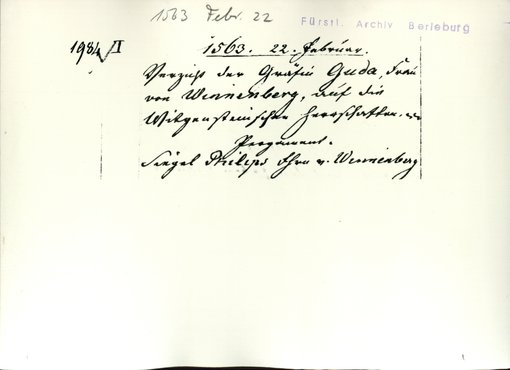 1563 Febr. 22
Fürstl. Archiv Berleburg
1984/II
1563. 22. Februar.
Verzicht der Gräfin Guda, Frau
von Winnenberg, auf die
Witgenstein'schen Herrschaften.
Pergament.
Siegel Philips Hrn v. Winnenberg